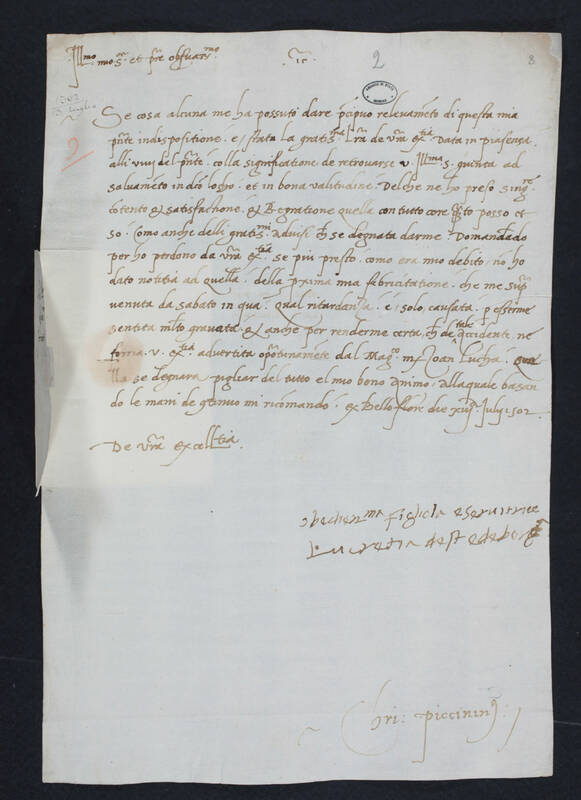 Ill.mo mio S.r et p̃re obſuat.mo 2 8
1502
luglio
Se coſa alcuna me ha poſſuto dare p̃cipuo relevameto di queſta mia
pñte indiſpoſitione. e ſtata la gratiſ.ma l̃ra de ṽra ex.tia Data in piaſenza
alli viij del pñte. colla ſignificatione de retrouarſe v. Ill.ma S. giunta ad
ſaluameto in et in bona valitudine. Delche ne ho preſo ſing.re
cõtento & ſatisfactione. & Regratione quella con tutto core q̃to poſſo et
ſo. Como anche delli gratiſ.mi aduiſi ch̃ ſe degnata darme. Domandãdo
per ho perdono da ṽra ex.tia ſe piu preſto. como era mio debito. nõ ho
dato notitia ad quella. della pxima mia febricitatione. che me ſup
venuta da ſabato in qua. qual ritardanza. e. ſolo cauſata. p eſſerme
ſentita mlto grauata. & anche per renderme certa. ch̃ de tale accidente. ne
foria. v. ex.tia aduertita oportunamẽte dal Mag.co m̃ Joan lucha. Quel
lla ſe degnara pigliar del tutto el mio bono animo. Allaquale baſan
do le mani de genuo mi ricomando. ex Belloflore die July 1502
De ṽra excell.tia
obedien.ma figliola e ſeruitrice
Lucretia deſte de bor
Chri: piccinin9